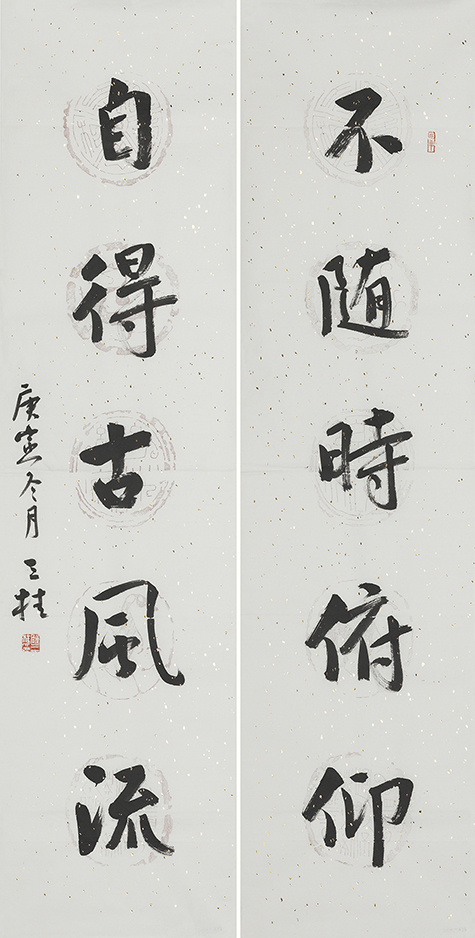 不随時俯仰
自得古風流
庚寅冬月 三桂